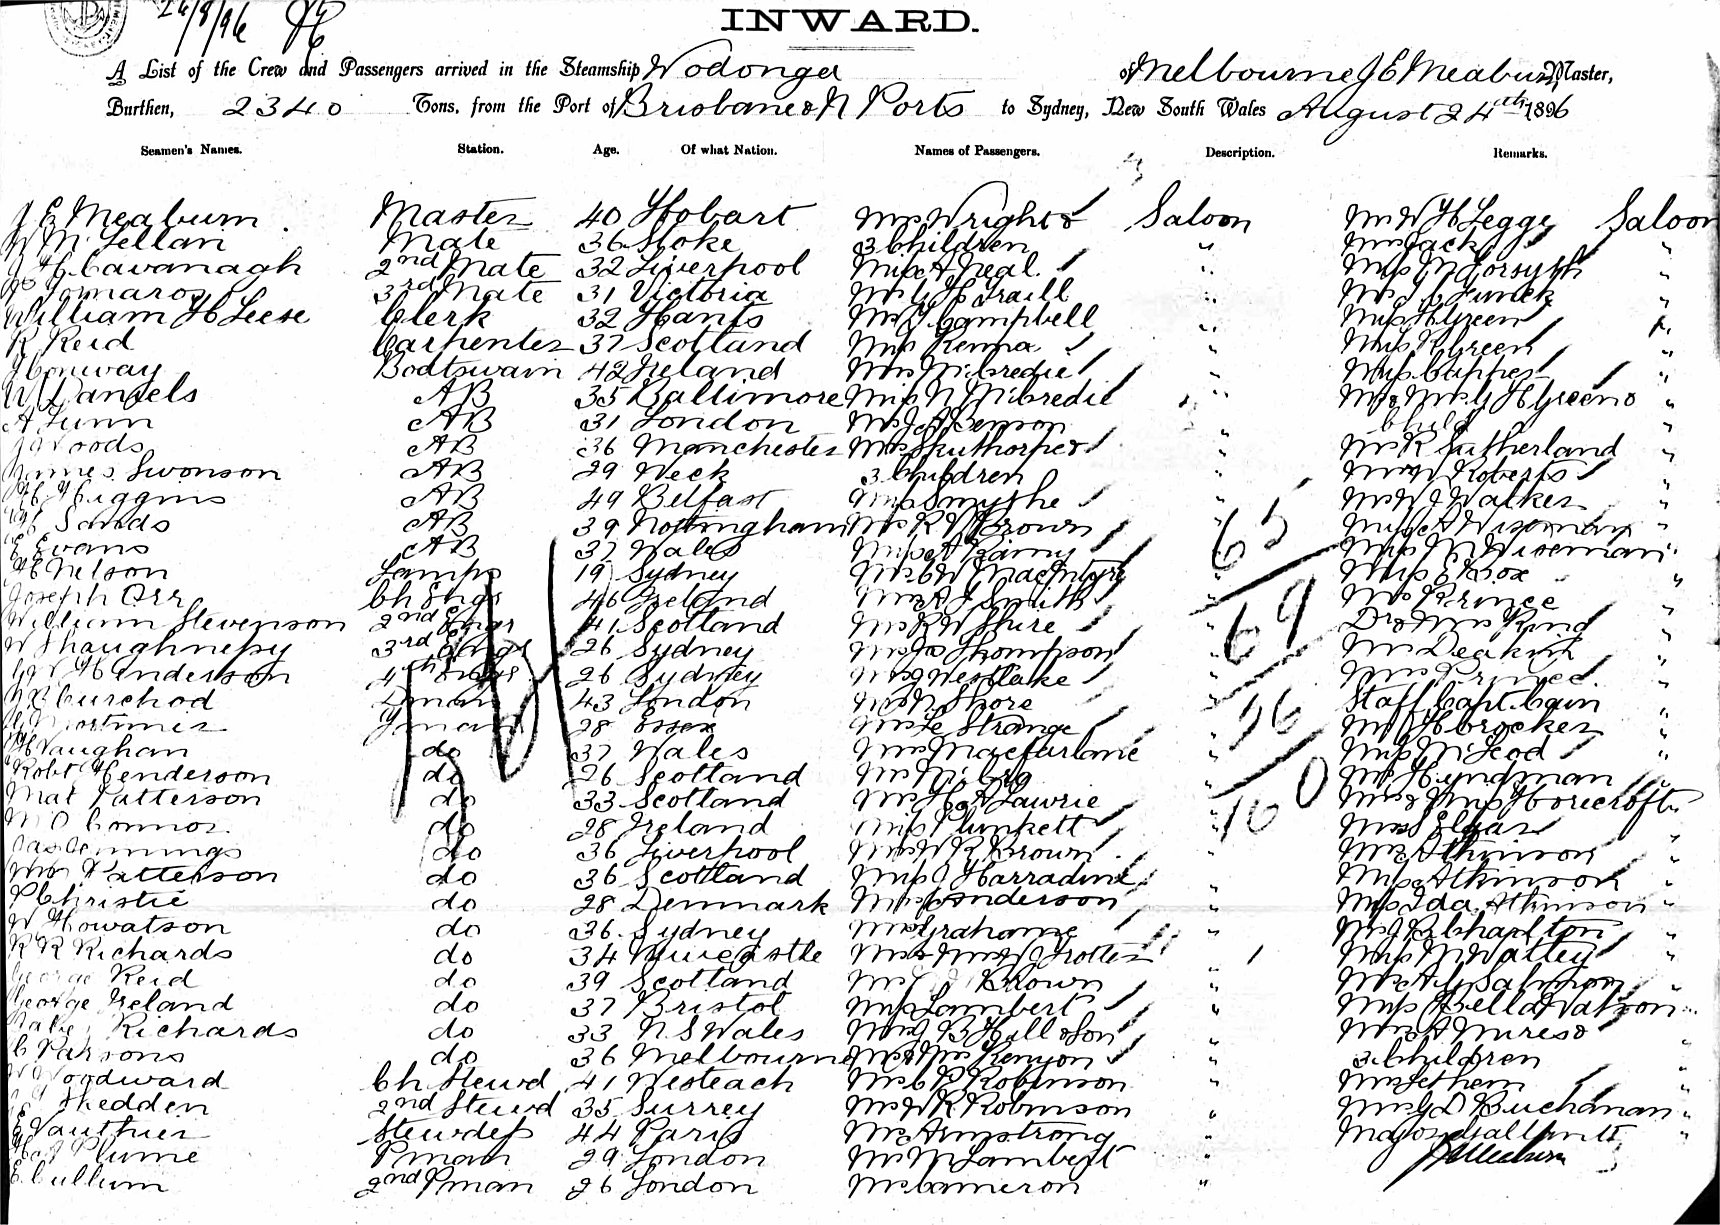 26/8/96
INWARD.
A List of the Crew and Passengers arrived in the Steamship Wodonga of Melbourne J E Meaburn Master,
Burthen, 2340 Tons, from the Port of Brisbane & N Ports to Sydney, New South Wales August 24th 1896
Seamen's Names. Station. Age. Of what Nation. Names of Passengers. Description. Remarks.
J E Meaburn Master 40 Hobart Mrs Wright & Saloon Mr W H Legge Saloon
W McLellan Mate 36 Stoke 3 Children " Mrs Jack "
J H Cavanagh 2nd Mate 32 Liverpool Miss A Neal " Miss M Forsyth "
3rd Mate 31 Victoria Mr G H Traill " "
William H Leese Clerk 32 Hants Mr J Campbell " Miss H Green "
R Reid Carpenter 37 Scotland Miss Kenna " Miss R Green "
J Conway Boatswain 42 Ireland Mrs McCredie " "
W Daniels AB 35 Baltimore Miss N McCredie " Mr & Mrs G H Green & "
A Gunn AB 31 London Mr J A Benson " Child
J Woods AB 36 Manchester Mrs & " Mr R Sutherland "
James Swonson AB 29 Weck 3 Children " Mr W Roberts "
H Higgins AB 49 Belfast Mrs Smythe " Mr W J Walker "
Sands AB 39 Nottingham Mr R W Brown " "
E Evans AB 37 Wales " Miss M Wiseman "
Nelson Lamps 19 Sydney Mr C W MacIntyre " Miss E Box "
Joseph Orr Ch Engr 46 Ireland Mr A J Smith " Mr Prince "
William Stevenson 2nd Engr 41 Scotland Mr R W Shire " Dr & Mrs King "
W Shaughnessy 3rd Engr 26 Sydney Mr Jas Thompson " Mr Deakin "
Henderson 4th Engr 26 Sydney Mr G Westlake " Mrs Prince "
Churchod Dman 43 London Mr N Shore " Staff Capt Cain "
Mortimer Fman 28 Essex Mr Le Strange " Mr J H Crocker "
H Vaughan do 37 Wales Mrs Macfarlane " Miss McLeod "
Robt Henderson do 26 Scotland Mr " Mr Hyndman "
Mat Patterson do 33 Scotland Mr H A Lawrie " Mr & Mrs Horecroft "
M O Connor do 28 Ireland Miss Plunkett " Mrs Elgar "
Jas Jennings do 36 Liverpool Mr W R Brown " Mrs Atkinson "
Wm Patterson do 36 Scotland Miss J Harradine " Miss Atkinson "
P Christie do 28 Denmark Miss Anderson " Miss Ida Atkinson "
W Howatson do 36 Sydney Mr Grahame " Mr J R Charlton "
R R Richards do 34 Newcastle Mr & Mrs W J Trotter " "
George Reid do 39 Scotland Mr Brown " Mr A G Salmon "
George Ireland do 37 Bristol Miss Lambert " Miss Bella Watson "
Richards do 33 N S Wales Mrs J B Hill & Son " &
C Parsons do 36 Melbourne Mr & Mrs Kenyon " 3 Children "
W Woodward Ch Stewd 41 Mr C P Robinson " "
Shedden 2nd Stewd 35 Surrey Mr W R Robinson " Mr G D Buchanan "
E Vauthier Stewdess 44 Paris Mr Armstrong " Major "
H J Plume Pman 29 London Mr M Lambert " J E Meaburn
E Cullum 2nd Pman 26 London Mr Cameron "
65
69
26
160